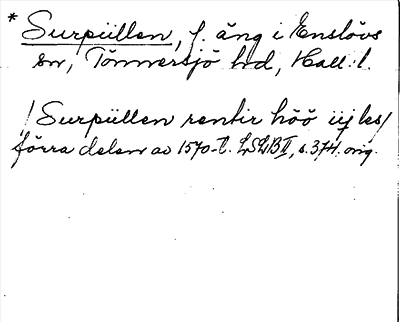 * Surpüllen, f. äng i Enslövs
sn, Tönnersjö hd, Hall. l.
/Surpüllen rentir höö üj les/
förra delen av 1570-t. LSLB II, s. 374. orig.